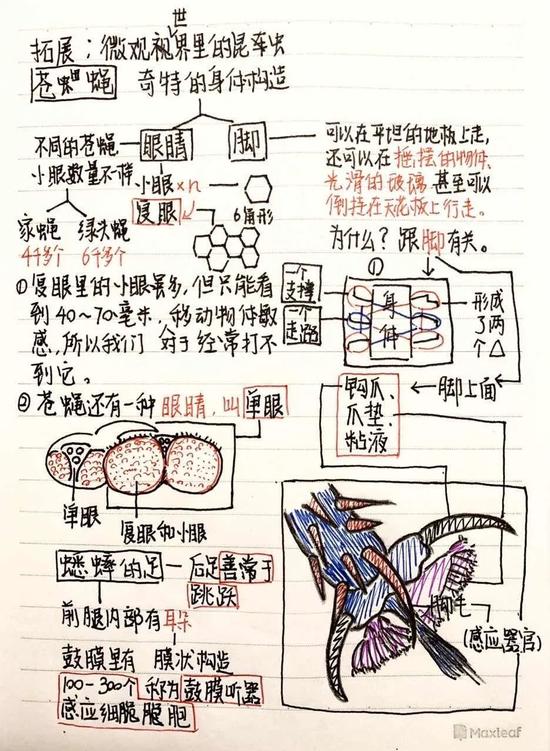 世
拓展：微观视界里的昆虫
苍蝇 奇特的身体构造
不同的苍蝇
小眼数量不一样
眼睛
脚
小眼×n
复眼
6角形
家蝇 绿头蝇
4千多个 6千多个
可以在平坦的地板上走,
还可以在摇摆的物体、
光滑的玻璃 甚至可以
倒挂在天花板上行走。
为什么？跟脚有关。
①复眼里的小眼虽多,但只能看
到40~70毫米,移动物体敏
感,所以我们 对于经常打不
到它。
①
一个
支撑
一个
走路
身
体
形成
了两
个△
②苍蝇还有一种 眼睛,叫单眼
钩爪、
爪垫、
粘液
脚上面
单眼
复眼和小眼
蟋蟀的足
后足善常于
跳跃
前腿内部有耳朵
鼓膜里有 膜状构造
100-300个 称为鼓膜听器
感应细胞
脚毛
(感应器官)
Maxleaf